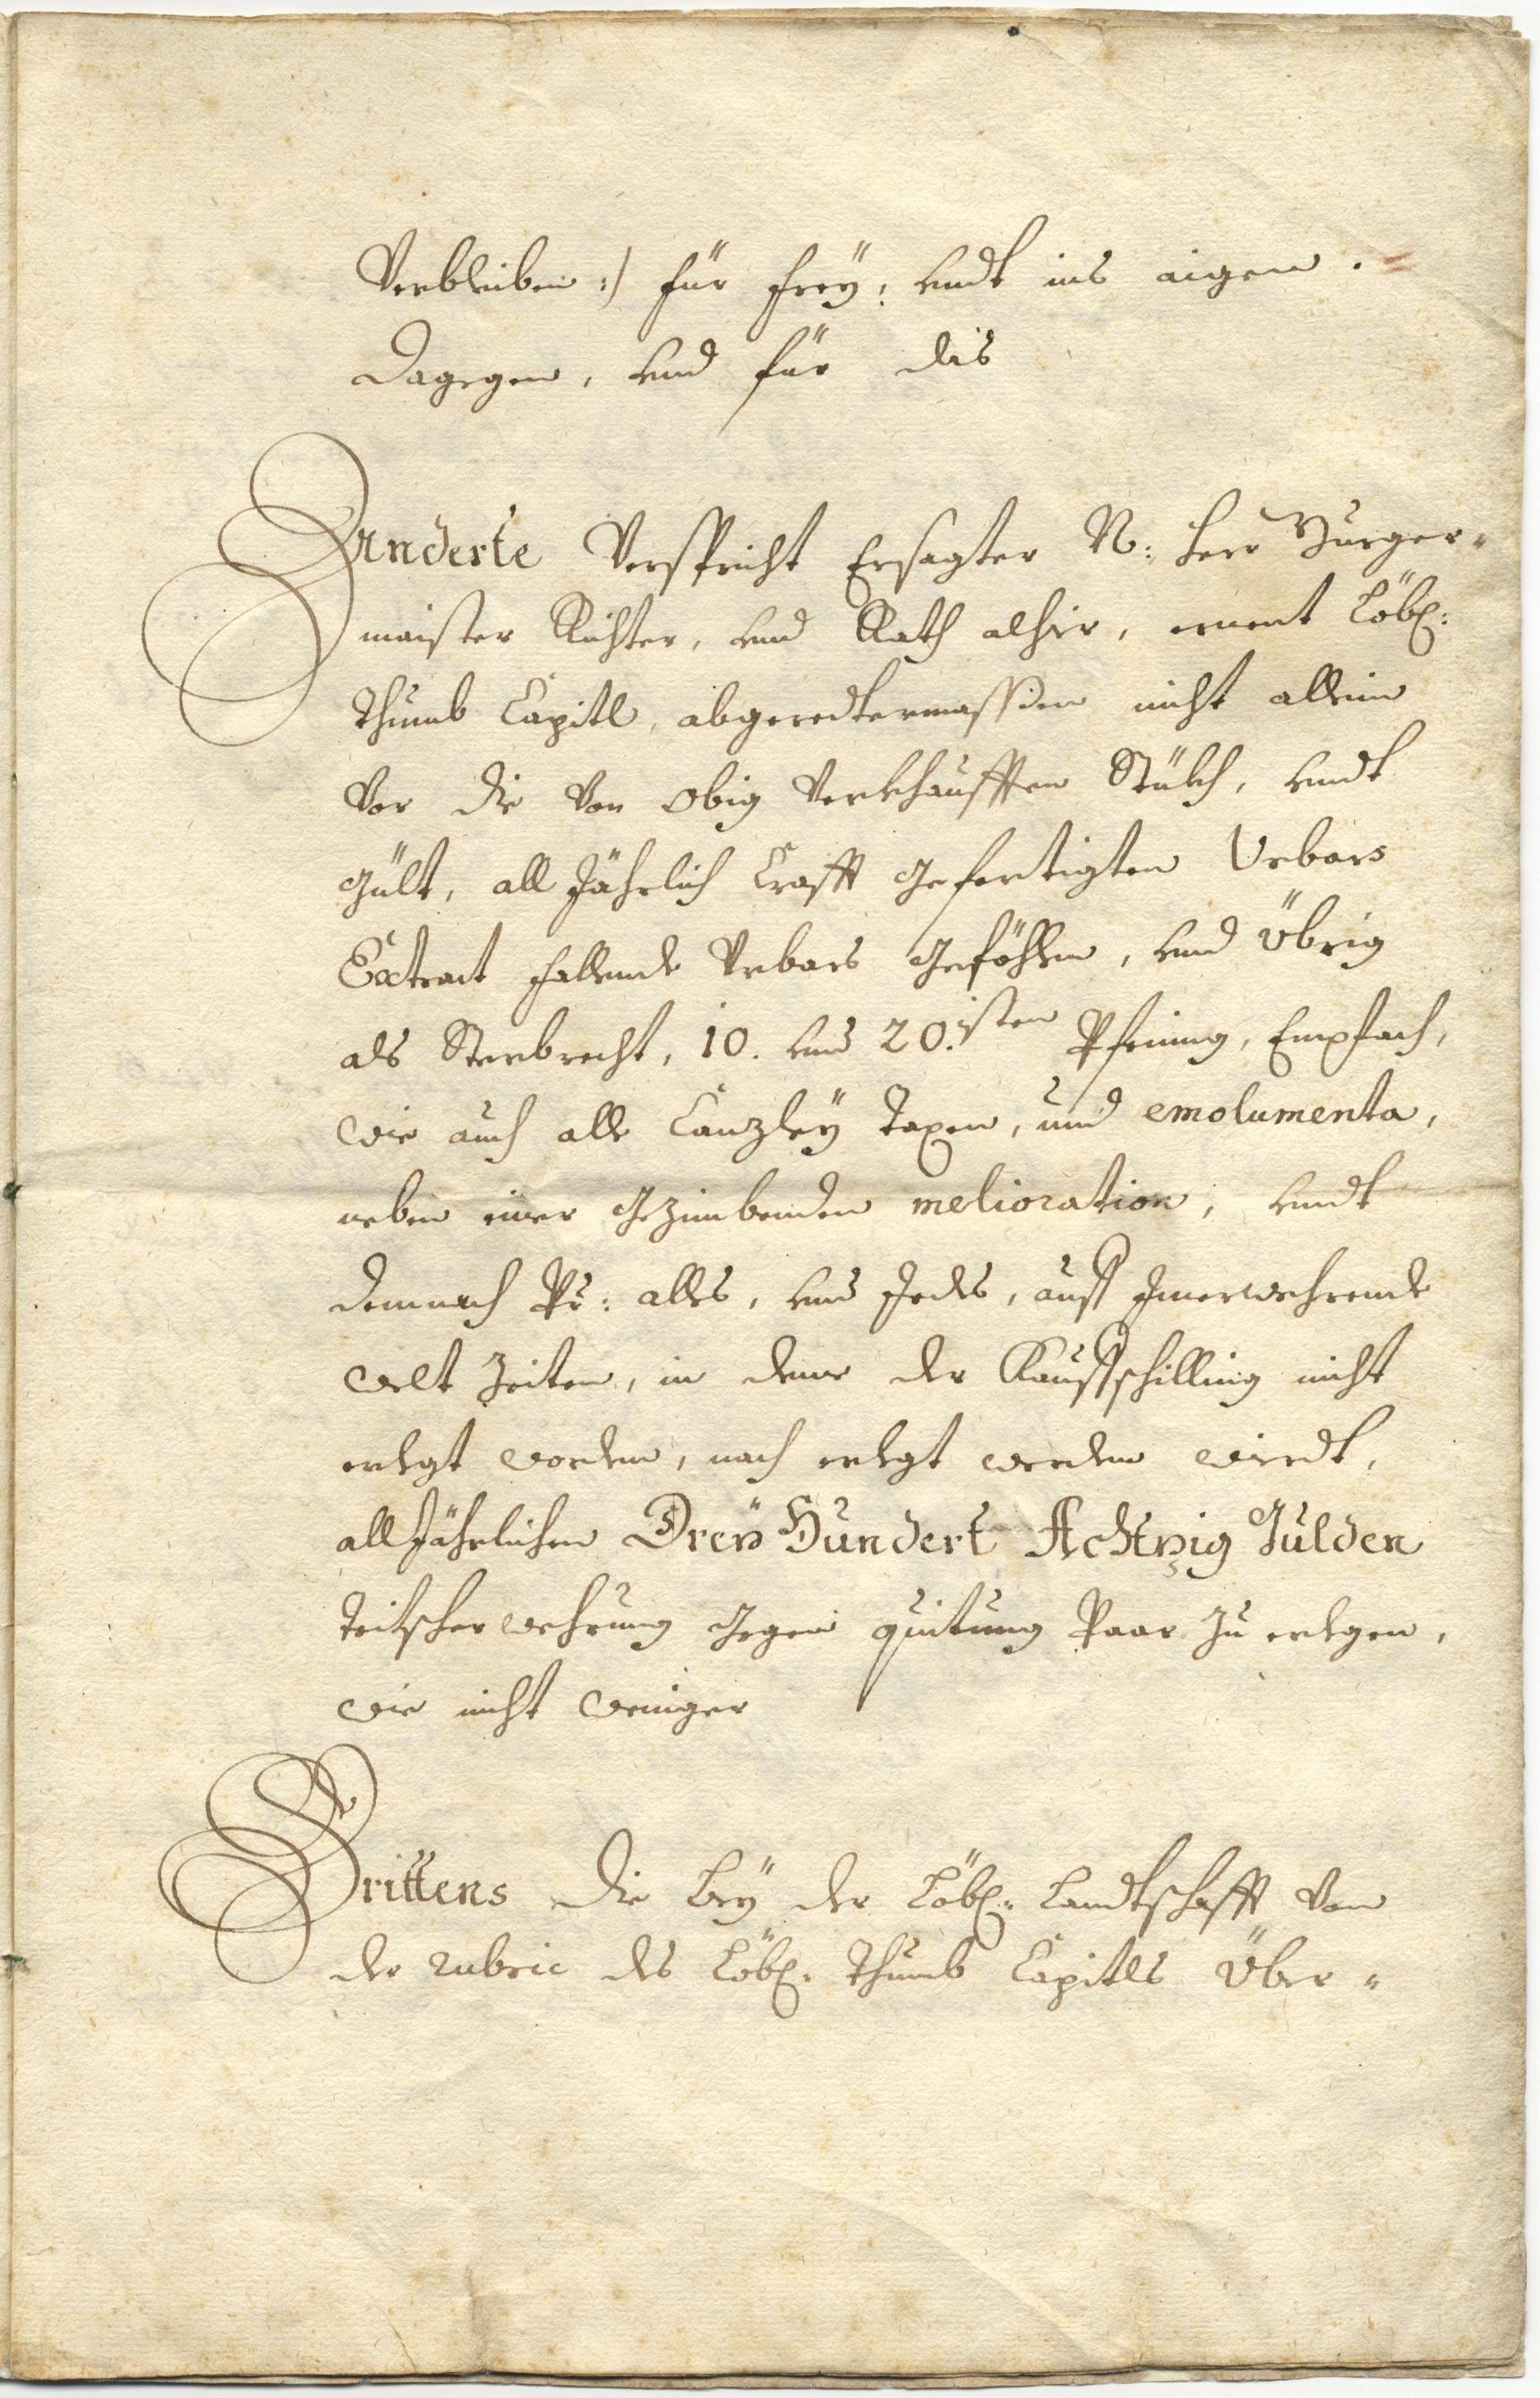 Verbleiben :/ für frey: undt ins aigen.
Dagegen, und für das
Anderte Verspricht Ersagter N: Herr Burger-
maister Richter, und Rath alhier, ernent Löbl:
Thumb Capitl, abgeredtermassen nicht allein
Vor die Von obig Verkhaufften Stükh, undt
Gült, all Jährlich Crafft Gefertigten Urbars
Extract fallende Urbars Geföhlen, und Übrig
als Sterbrecht, 10. und 20.isten Pfening, Empfach,
wie auch alle Canzley Taxen, und emolumenta,
neben einer Gezimbenden melioration, undt
demnach Pr: alles, und Jedes, auff Imerwehrende
welt Zeiten, in deme der Kauffschilling nicht
erlegt worden, noch erlegt werden wirdt,
all Jährlichen Dreÿ Hundert Achtzig Gulden
Teitscher wehrung gegen quitung Paar zu erlegen,
wie nicht weniger
Drittens die beÿ der Löbl: Landtschafft Von
der rubric des Löbl: Thumb Capitls Über-